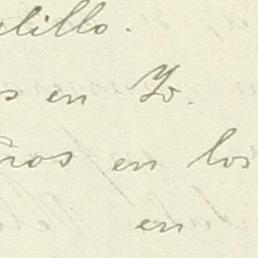 elillo.
s en Yo.
ños en los
en